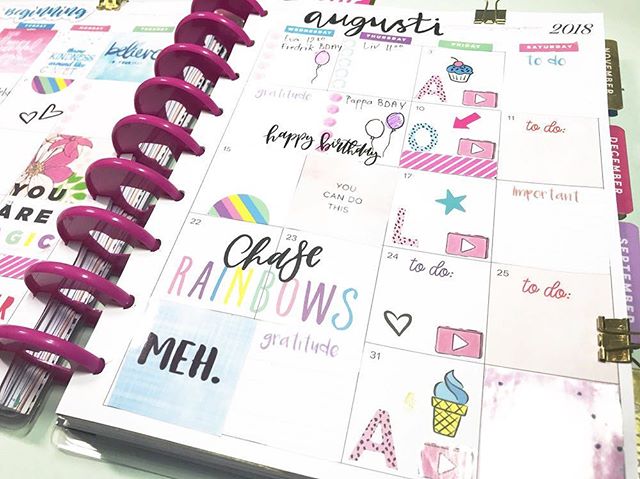 Beginning
augusti
2018
WEDNESDAY
THURSDAY
FRIDAY
SATURDAY
Fredrik BDAY
to do
KINDNESS
believe
A
gratitude
Pappa BDAY
10
11
happy birthday
O
to do:
15
YOU
ARE
YOU
CAN DO
THIS
17
L
Important
22
23
24
25
Chase
RAINBOWS
to do:
to do:
MEH.
gratitude
31
A
NOVEMBER
DECEMBER
SEPTEMBER